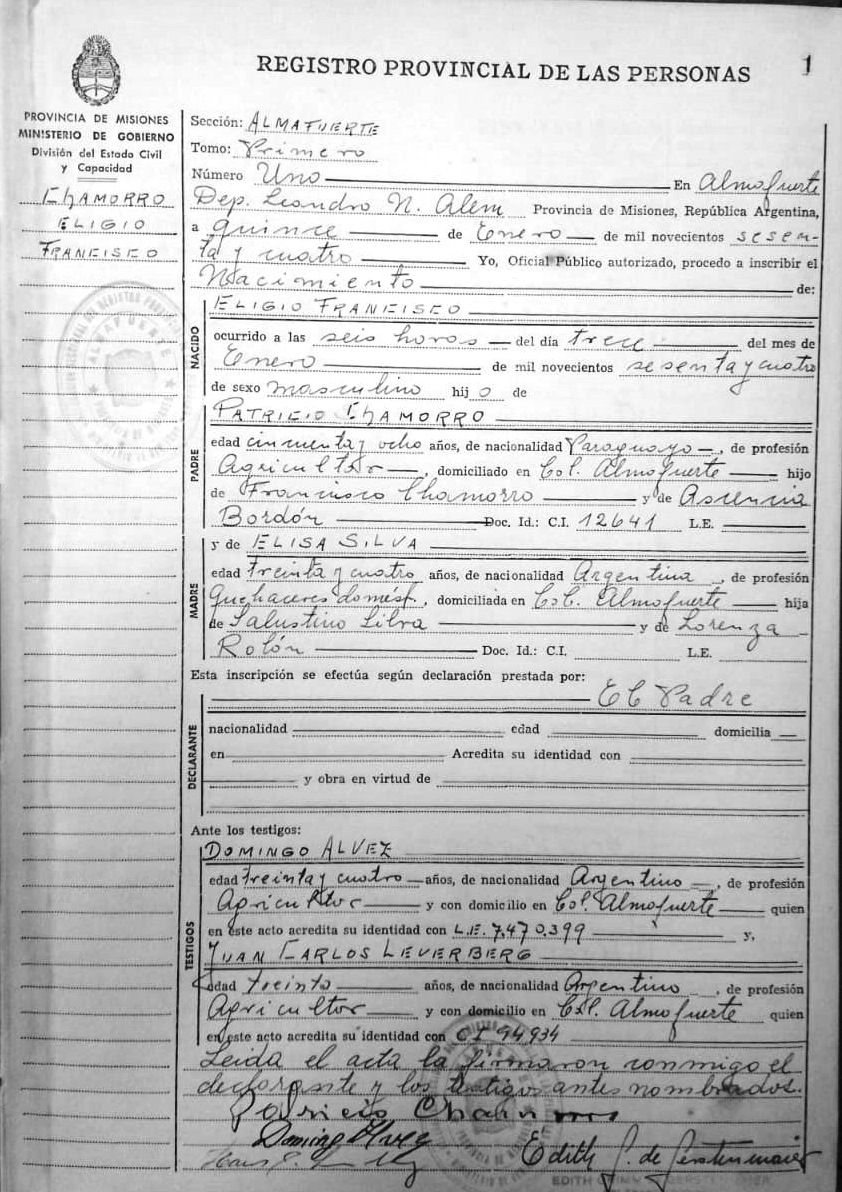 REGISTRO PROVINCIAL DE LAS PERSONAS
1
PROVINCIA DE MISIONES
MINISTERIO DE GOBIERNO
División del Estado Civil
y Capacidad
CHAMORRO
ELIGIO
FRANCISCO
Sección: ALMAFUERTE
Tomo: Primero
Número Uno En Almafuerte
Dep. Leandro N. Alem Provincia de Misiones, República Argentina,
a quince de Enero de mil novecientos sesen-
ta y cuatro Yo, Oficial Público autorizado, procedo a inscribir el
Nacimiento de:
NACIDO
ELIGIO FRANCISCO
ocurrido a las seis horas del día trece del mes de
Enero de mil novecientos sesenta y cuatro
de sexo masculino hijo de
PADRE
PATRICIO CHAMORRO
edad cincuenta y ocho años, de nacionalidad Paraguayo, de profesión
Agricultor, domiciliado en Col. Almafuerte hijo
de Francisco Chamorro y de Ascencia
Bordón Doc. Id.: C.I. 12641 L.E.
MADRE
y de ELISA SILVA
edad treinta y cuatro años, de nacionalidad Argentina, de profesión
Quehaceres domést., domiciliada en Col. Almafuerte hija
de Salustino Silva y de Lorenza
Rolón Doc. Id.: C.I. L.E.
Esta inscripción se efectúa según declaración prestada por:
El Padre
DECLARANTE
nacionalidad edad domicilia
en Acredita su identidad con
y obra en virtud de
Ante los testigos:
TESTIGOS
DOMINGO ALVEZ
edad treinta y cuatro años, de nacionalidad Argentino, de profesión
Agricultor y con domicilio en Col. Almafuerte quien
en este acto acredita su identidad con L.E. 7.470.399 y,
JUAN CARLOS LEVERBERG
edad treinta años, de nacionalidad Argentino, de profesión
Agricultor y con domicilio en Col. Almafuerte quien
en este acto acredita su identidad con CI 94934
Leida el acta la firmaron conmigo el
declarante y los testigos antes nombrados.
Patricio Chamorro
Domingo Alvez
Edith G. de Gerstenmaier